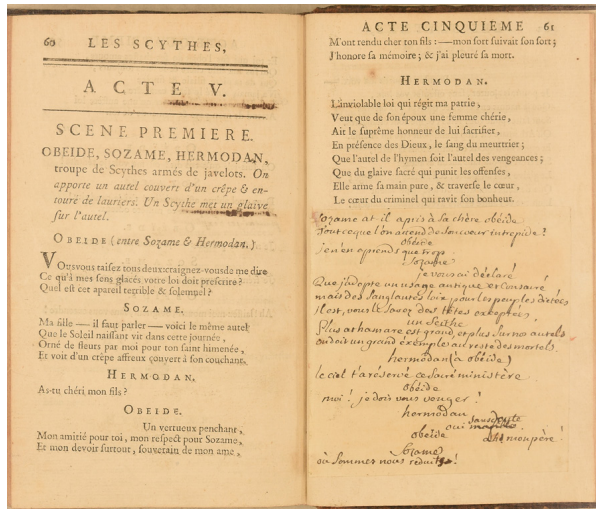 60 LES SCYTHES,
ACTE V.
SCENE PREMIERE.
OBEIDE, SOZAME, HERMODAN,
troupe de Scythes armés de javelots. On
apporte un autel couvert d'un crêpe & en-
touré de lauriers. Un Scythe met un glaive
sur l'autel.
OBEIDE (entre Sozame & Hermodan.)
Vous vous taisez tous deux: craignez-vous de me dire
Ce qu'à mes sens glacés votre loi doit prescrire?
Quel est cet appareil terrible & solemnel?
SOZAME.
Ma fille — il faut parler — voici le même autel
Que le Soleil naissant vit dans cette journée,
Orné de fleurs par moi pour ton saint himenée,
Et voit d'un crêpe affreux couvert à son couchant.
HERMODAN.
As-tu chéri mon fils?
OBEIDE.
Un vertueux penchant,
Mon amitié pour toi, mon respect pour Sozame,
Et mon devoir surtout, souverain de mon ame,
ACTE CINQUIEME 61
M'ont rendu cher ton fils: — mon sort suivait son sort;
J'honore sa mémoire; & j'ai pleuré sa mort.
HERMODAN.
L'inviolable loi qui régit ma patrie,
Veut que de son époux une femme chérie,
Ait le suprême honneur de lui sacrifier,
En présence des Dieux, le sang du meurtrier;
Que l'autel de l'hymen soit l'autel des vengeances;
Que du glaive sacré qui punit les offenses,
Elle arme sa main pure, & traverse le cœur,
Le cœur du criminel qui ravit son bonheur.
Sozame at il apris à sa chère obéide
Tout ce que l'on attend de son cœur intrépide?
obéide
j'en en aprends que trop.
Sozame
je vous ai déclaré
Que j'adopte un usage antique et consacré
mais des sanglantes loix pour les peuples dictées
il est, vous le savez des têtes exceptées
un Scithe
Plus athamare est grand, et plus sur nos autels
on doit un grand exemple au reste des mortels.
hermodan (à obéide)
le ciel t'a réservé ce sacré ministère
obéide
moi! je dois vous venger!
hermodan
oui sans doute
obéide
ah! mon père!
Sozame
où sommes nous réduits!